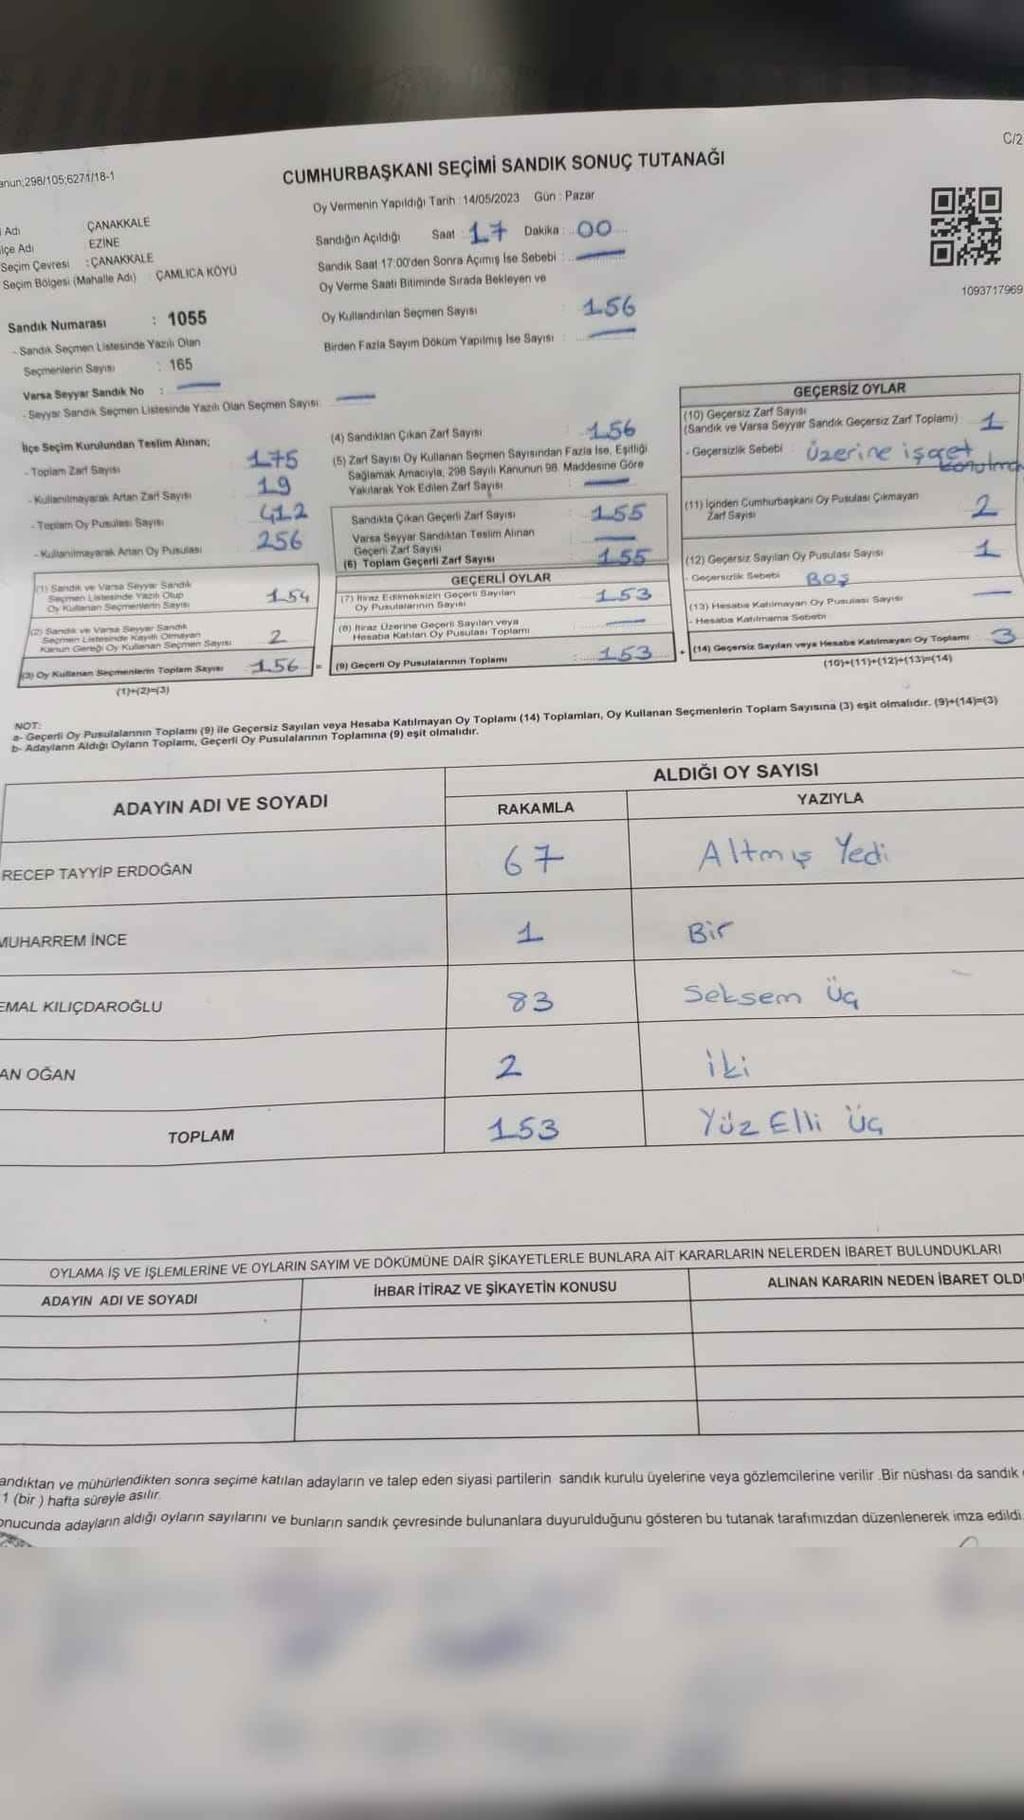 anun;298/105;6271/18-1
C/2
CUMHURBAŞKANI SEÇİMİ SANDIK SONUÇ TUTANAĞI
Oy Vermenin Yapıldığı Tarih : 14/05/2023 Gün : Pazar
Adı ÇANAKKALE
lçe Adı : EZİNE
Seçim Çevresi : ÇANAKKALE
Seçim Bölgesi (Mahalle Adı) ÇAMLICA KÖYÜ
Sandık Numarası : 1055
- Sandık Seçmen Listesinde Yazılı Olan
Seçmenlerin Sayısı : 165
Varsa Seyyar Sandık No :
- Seyyar Sandık Seçmen Listesinde Yazılı Olan Seçmen Sayısı:
Sandığın Açıldığı Saat : 17 Dakika : 00
Sandık Saat 17:00'den Sonra Açımış İse Sebebi :
Oy Verme Saati Bitiminde Sırada Bekleyen ve
Oy Kullandırılan Seçmen Sayısı : 156
Birden Fazla Sayım Döküm Yapılmış İse Sayısı :
1093717969
İlçe Seçim Kurulundan Teslim Alınan;
- Toplam Zarf Sayısı 175
- Kullanılmayarak Artan Zarf Sayısı 19
- Toplam Oy Pusulası Sayısı 412
- Kullanılmayarak Artan Oy Pusulası 256
(1) Sandık ve Varsa Seyyar Sandık
Seçmen Listesinde Yazılı Olup
Oy Kullanan Seçmenlerin Sayısı 154
(2) Sandık ve Varsa Seyyar Sandık
Seçmen Listesinde Kayıtlı Olmayan
Kanun Gereği Oy Kullanan Seçmen Sayısı 2
(3) Oy Kullanan Seçmenlerin Toplam Sayısı 156 =
(1)+(2)=(3)
(4) Sandıktan Çıkan Zarf Sayısı : 156
(5) Zarf Sayısı Oy Kullanan Seçmen Sayısından Fazla İse, Eşitliği
Sağlamak Amacıyla, 298 Sayılı Kanunun 98. Maddesine Göre
Yakılarak Yok Edilen Zarf Sayısı :
Sandıkta Çıkan Geçerli Zarf Sayısı : 155
Varsa Seyyar Sandıktan Teslim Alınan
Geçerli Zarf Sayısı
(6) Toplam Geçerli Zarf Sayısı : 155
GEÇERLİ OYLAR
(7) İtiraz Edilmeksizin Geçerli Sayılan
Oy Pusulalarının Sayısı : 153
(8) İtiraz Üzerine Geçerli Sayılan veya
Hesaba Katılan Oy Pusulası Toplamı
(9) Geçerli Oy Pusulalarının Toplamı : 153 +
GEÇERSİZ OYLAR
(10) Geçersiz Zarf Sayısı
(Sandık ve Varsa Seyyar Sandık Geçersiz Zarf Toplamı) 1
- Geçersizlik Sebebi : Üzerine işaret
(11) İçinden Cumhurbaşkanı Oy Pusulası Çıkmayan
Zarf Sayısı 2
(12) Geçersiz Sayılan Oy Pusulası Sayısı 1
- Geçersizlik Sebebi BOŞ
(13) Hesaba Katılmayan Oy Pusulası Sayısı
- Hesaba Katılmama Sebebi
(14) Geçersiz Sayılan veya Hesaba Katılmayan Oy Toplamı 3
(10)+(11)+(12)+(13)=(14)
NOT:
a- Geçerli Oy Pusulalarının Toplamı (9) ile Geçersiz Sayılan veya Hesaba Katılmayan Oy Toplamı (14) Toplamları, Oy Kullanan Seçmenlerin Toplam Sayısına (3) eşit olmalıdır. (9)+(14)=(3)
b- Adayların Aldığı Oyların Toplamı, Geçerli Oy Pusulalarının Toplamına (9) eşit olmalıdır.
ADAYIN ADI VE SOYADI
ALDIĞI OY SAYISI
RAKAMLA YAZIYLA
RECEP TAYYİP ERDOĞAN 67 Altmış Yedi
MUHARREM İNCE 1 Bir
EMAL KILIÇDAROĞLU 83 Seksem Üç
AN OĞAN 2 İki
TOPLAM 153 Yüz Elli Üç
OYLAMA İŞ VE İŞLEMLERİNE VE OYLARIN SAYIM VE DÖKÜMÜNE DAİR ŞİKAYETLERLE BUNLARA AİT KARARLARIN NELERDEN İBARET BULUNDUKLARI
ADAYIN ADI VE SOYADI İHBAR İTİRAZ VE ŞİKAYETİN KONUSU ALINAN KARARIN NEDEN İBARET OLD
andıktan ve mühürlendikten sonra seçime katılan adayların ve talep eden siyasi partilerin sandık kurulu üyelerine veya gözlemcilerine verilir .Bir nüshası da sandık
1 (bir ) hafta süreyle asılır.
onucunda adayların aldığı oyların sayılarını ve bunların sandık çevresinde bulunanlara duyurulduğunu gösteren bu tutanak tarafımızdan düzenlenerek imza edildi.